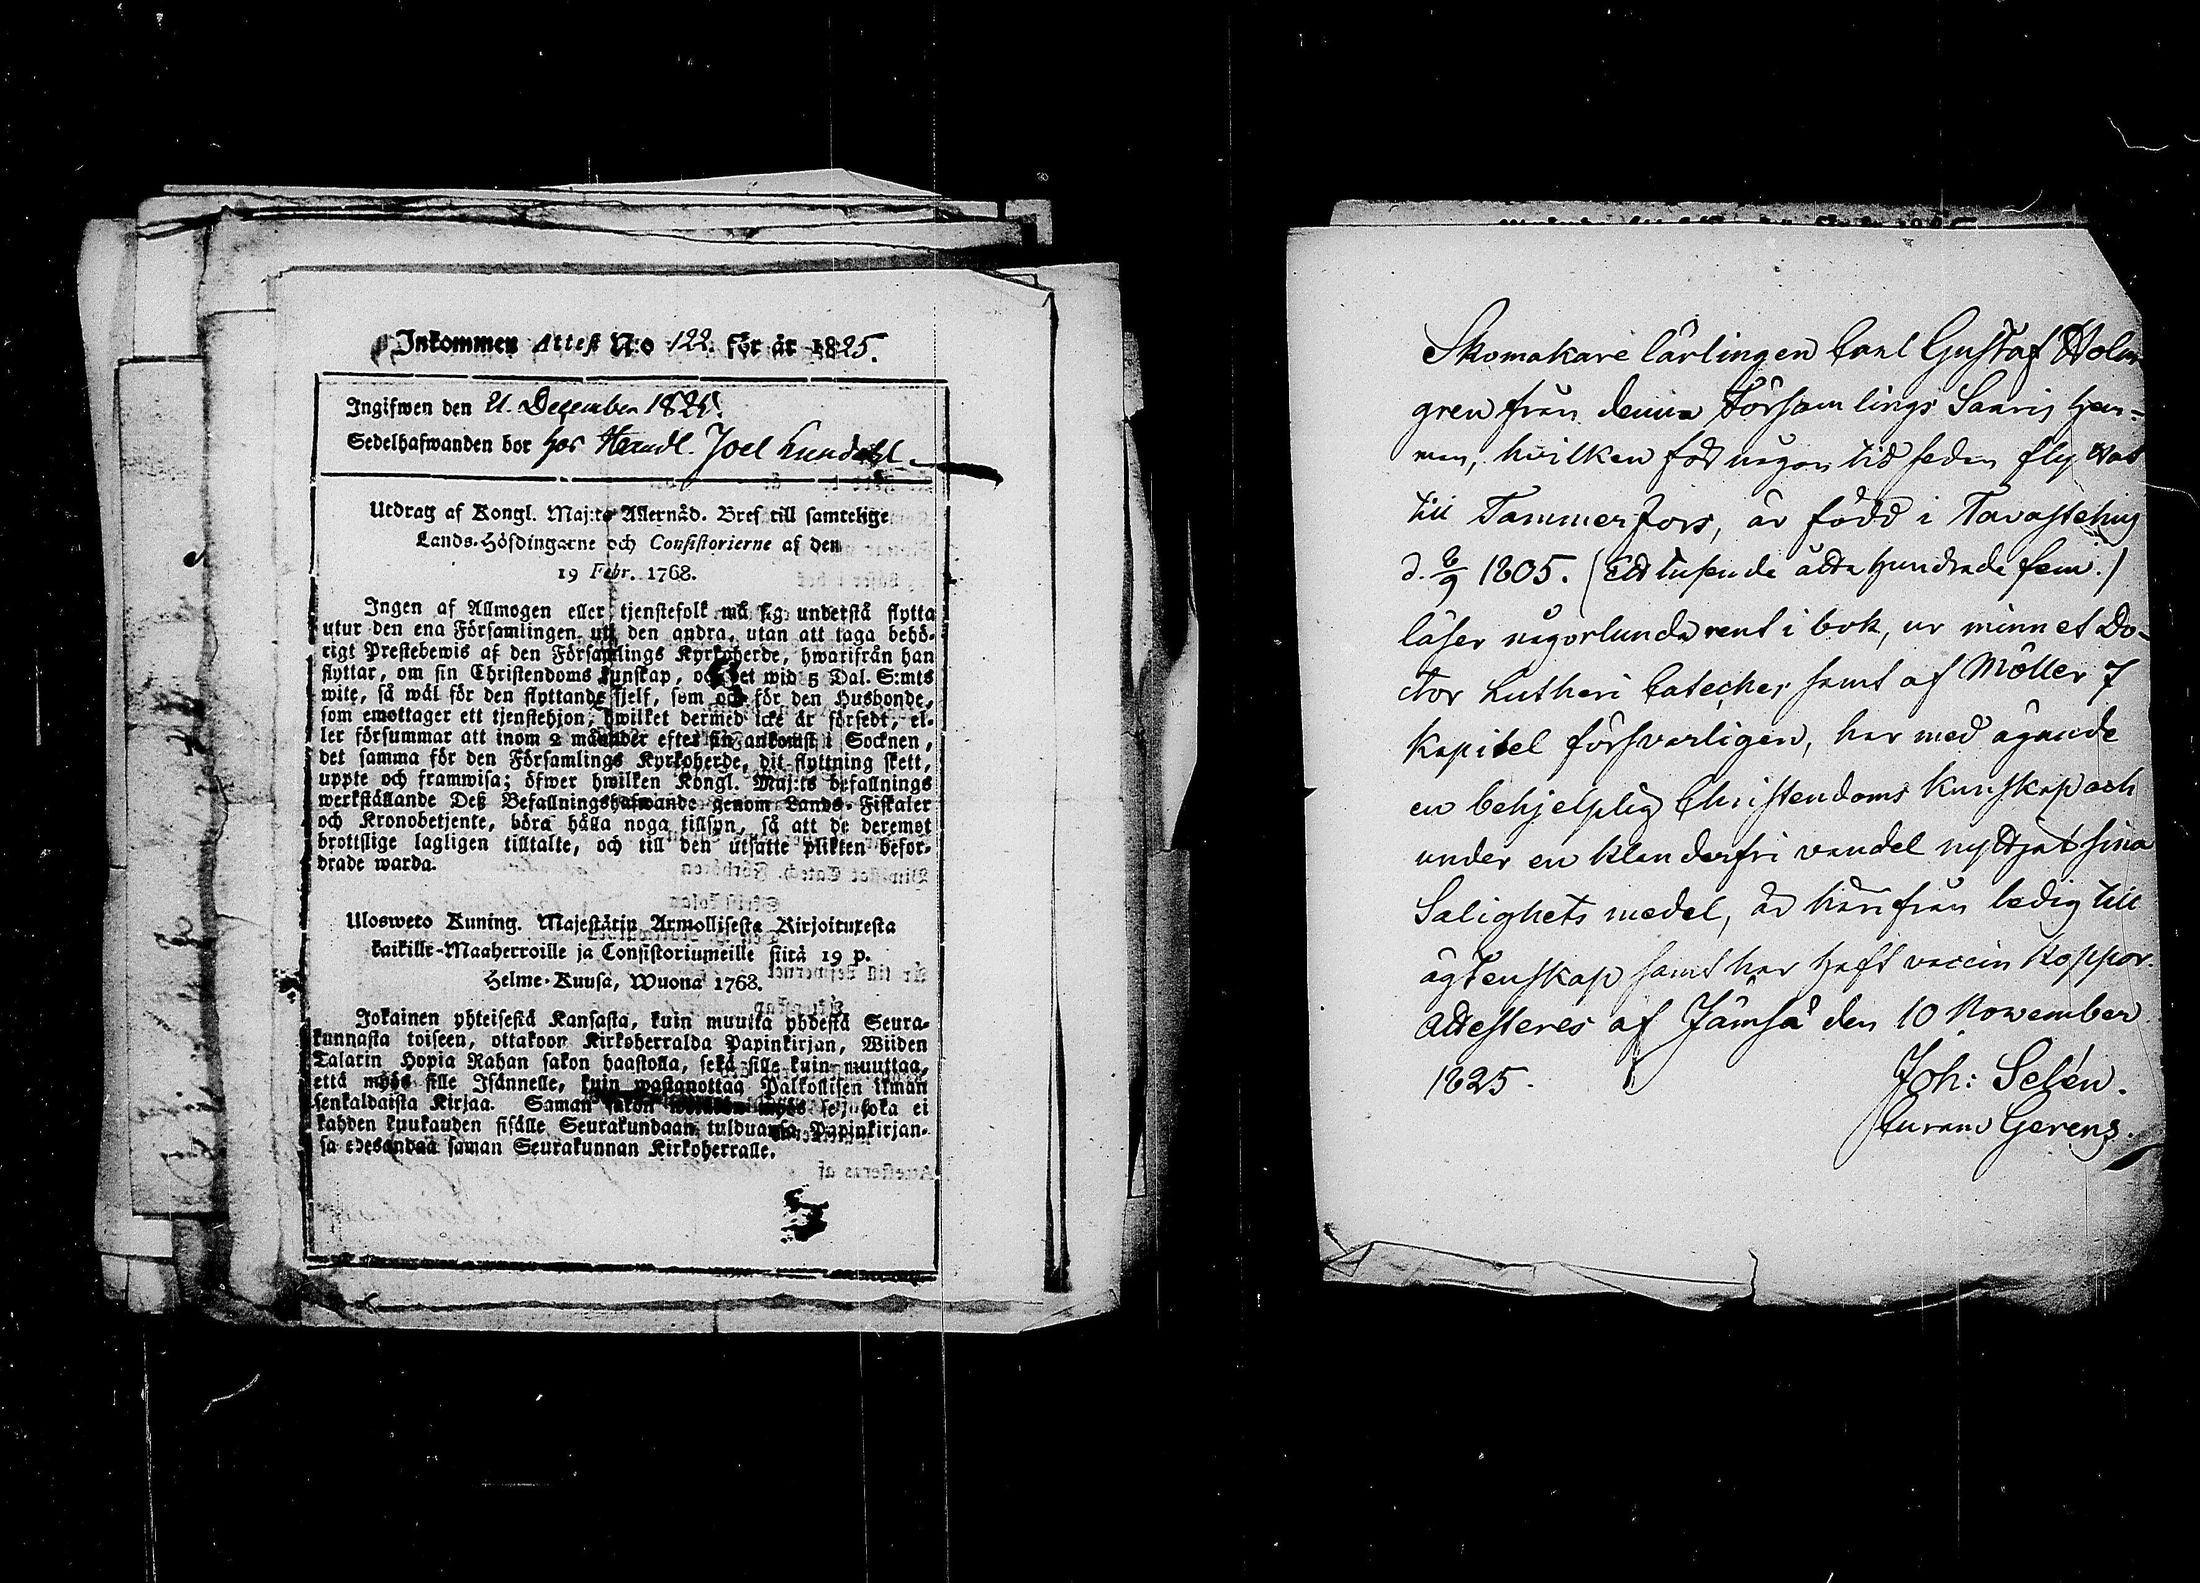 Inkommen Attest N:o 122 för år 1825.
Ingifwen den 21. December 1825.
Sedelhafwanden bor hos Handl. Joel Lundahl
Utdrag af Kongl. Maj:ts Allernåd. Bref till samtelige
Lands-Höfdingarne och Consistorierne af den
19 Febr. 1768.
Ingen af Allmogen eller tjenstefolk må sig understå flytta
utur den ena Församlingen uti den andra, utan att taga behö-
rigt Prestebewis af den Församlings Kyrkoherde, hwarifrån han
flyttar, om sin Christendoms kunskap, och det wid 5 Dal. S:mts
wite, så wäl för den flyttande sjelf, som och för den Husbonde,
som emottager ett tjenstehjon, hwilket dermed icke är försedt, el-
ler försummar att inom 2 månader efter sin ankomst i Socknen,
det samma för den Församlings Kyrkoherde, dit flyttning skett,
uppte och framwisa; öfwer hwilken Kongl. Maj:ts befallnings
werkställande Deß Befallningshafwande genom Lands-Fiskaler
och Kronobetjente, böra hålla noga tillsyn, så att de deremot
brottslige lagligen tilltalte, och till den utsatte plikten befor-
drade warda.
Ulosweto Kuning. Majestätin Armollisesta Kirjoituxesta
kaikille Maaherroille ja Consistoriumeille siitä 19 p.
Helme-Kuusa, Wuona 1768.
Jokainen yhteisestä Kansasta, kuin muutta yhdestä Seura-
kunnasta toiseen, ottakoon Kirkoherralda Papinkirjan, Wiiden
Talarin Hopia Rahan sakon haastolla, sekä sille kuin muuttaa,
että myös sille Isännelle, kuin wastanottaa Palkollisen ilman
senkaldaista Kirjaa. Saman sakon myös se, joka ei
kahden kuukauden sisälle Seurakundaan tulduansa Papinkirjan-
sa edesandaa saman Seurakunnan Kirkoherralle.
Skomakare lärlingen Carl Gustaf Holm-
gren från denna Församlings Saaris hem-
man, hvilken för någon tid sedan flyttat
till Tammerfors, är född i Tavastehus
d. 2/9 1805. (Ett tusende åtta hundrade fem.)
läser någorlunda rent i bok, ur minnet Do-
ctor Lutheri Cateches samt af Möller 7
Kapitel försvarligen, har med ägande
en behjelplig Christendoms kunskap och
under en klanderfri vandel nyttjat sina
Salighets medel, är härifrån ledig till
ägtenskap samt har haft vaccin koppor.
Attesteres af Jämsä den 10 November
1825.
Joh: Selén.
Curam Gerens.